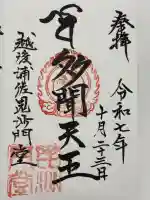 奉拝
令和七年
十月二十三日
多聞天王
越後浦佐毘沙門堂